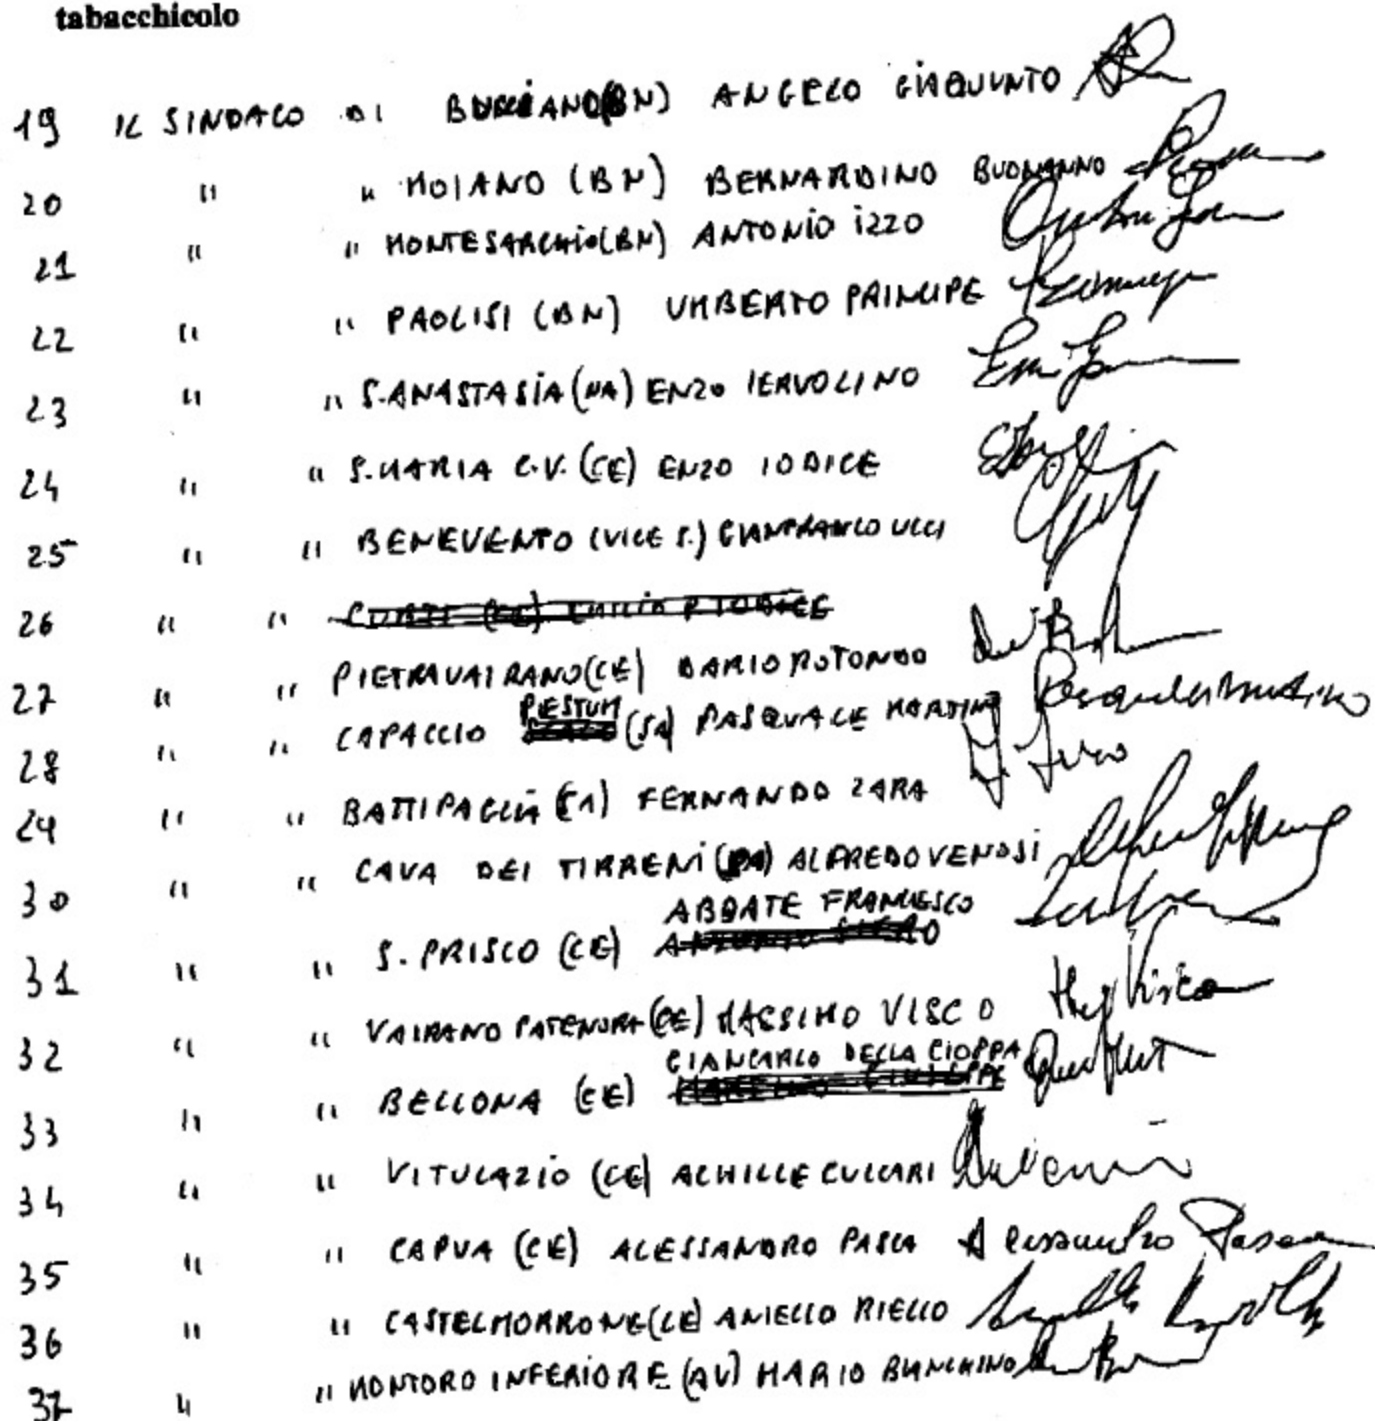 tabacchicolo
19 IL SINDACO DI BUCCIANO (BN) ANGELO GIAQUINTO
20 " " MOIANO (BN) BERNARDINO BUONANNO
21 " " MONTESARCHIO (BN) ANTONIO IZZO
22 " " PAOLISI (BN) UMBERTO PRINCIPE
23 " " S. ANASTASIA (NA) ENZO IERVOLINO
24 " " S. MARIA C.V. (CE) ENZO IODICE
25 " " BENEVENTO (VICE S.) GIANFRANCO UCCI
26 " "
27 " " PIETRAVAIRANO (CE) DARIO ROTONDO
28 " " CAPACCIO PESTUM (SA) PASQUALE MARTINO Pasquale Martino
29 " " BATTIPAGLIA (SA) FERNANDO ZARA
30 " " CAVA DEI TIRRENI (SA) ALFREDO VENOSI
31 " " S. PRISCO (CE) ABBATE FRANCESCO
32 " " VAIRANO PATENORA (CE) MASSIMO VISCO Visco
33 " " BELLONA (CE) GIANCARLO DELLA CIOPPA
34 " " VITULAZIO (CE) ACHILLE CUCCARI
35 " " CAPUA (CE) ALESSANDRO PASCA Alessandro Pasca
36 " " CASTELMORRONE (CE) ANIELLO RIELLO
37 " " MONTORO INFERIORE (AV) MARIO BIANCHINO